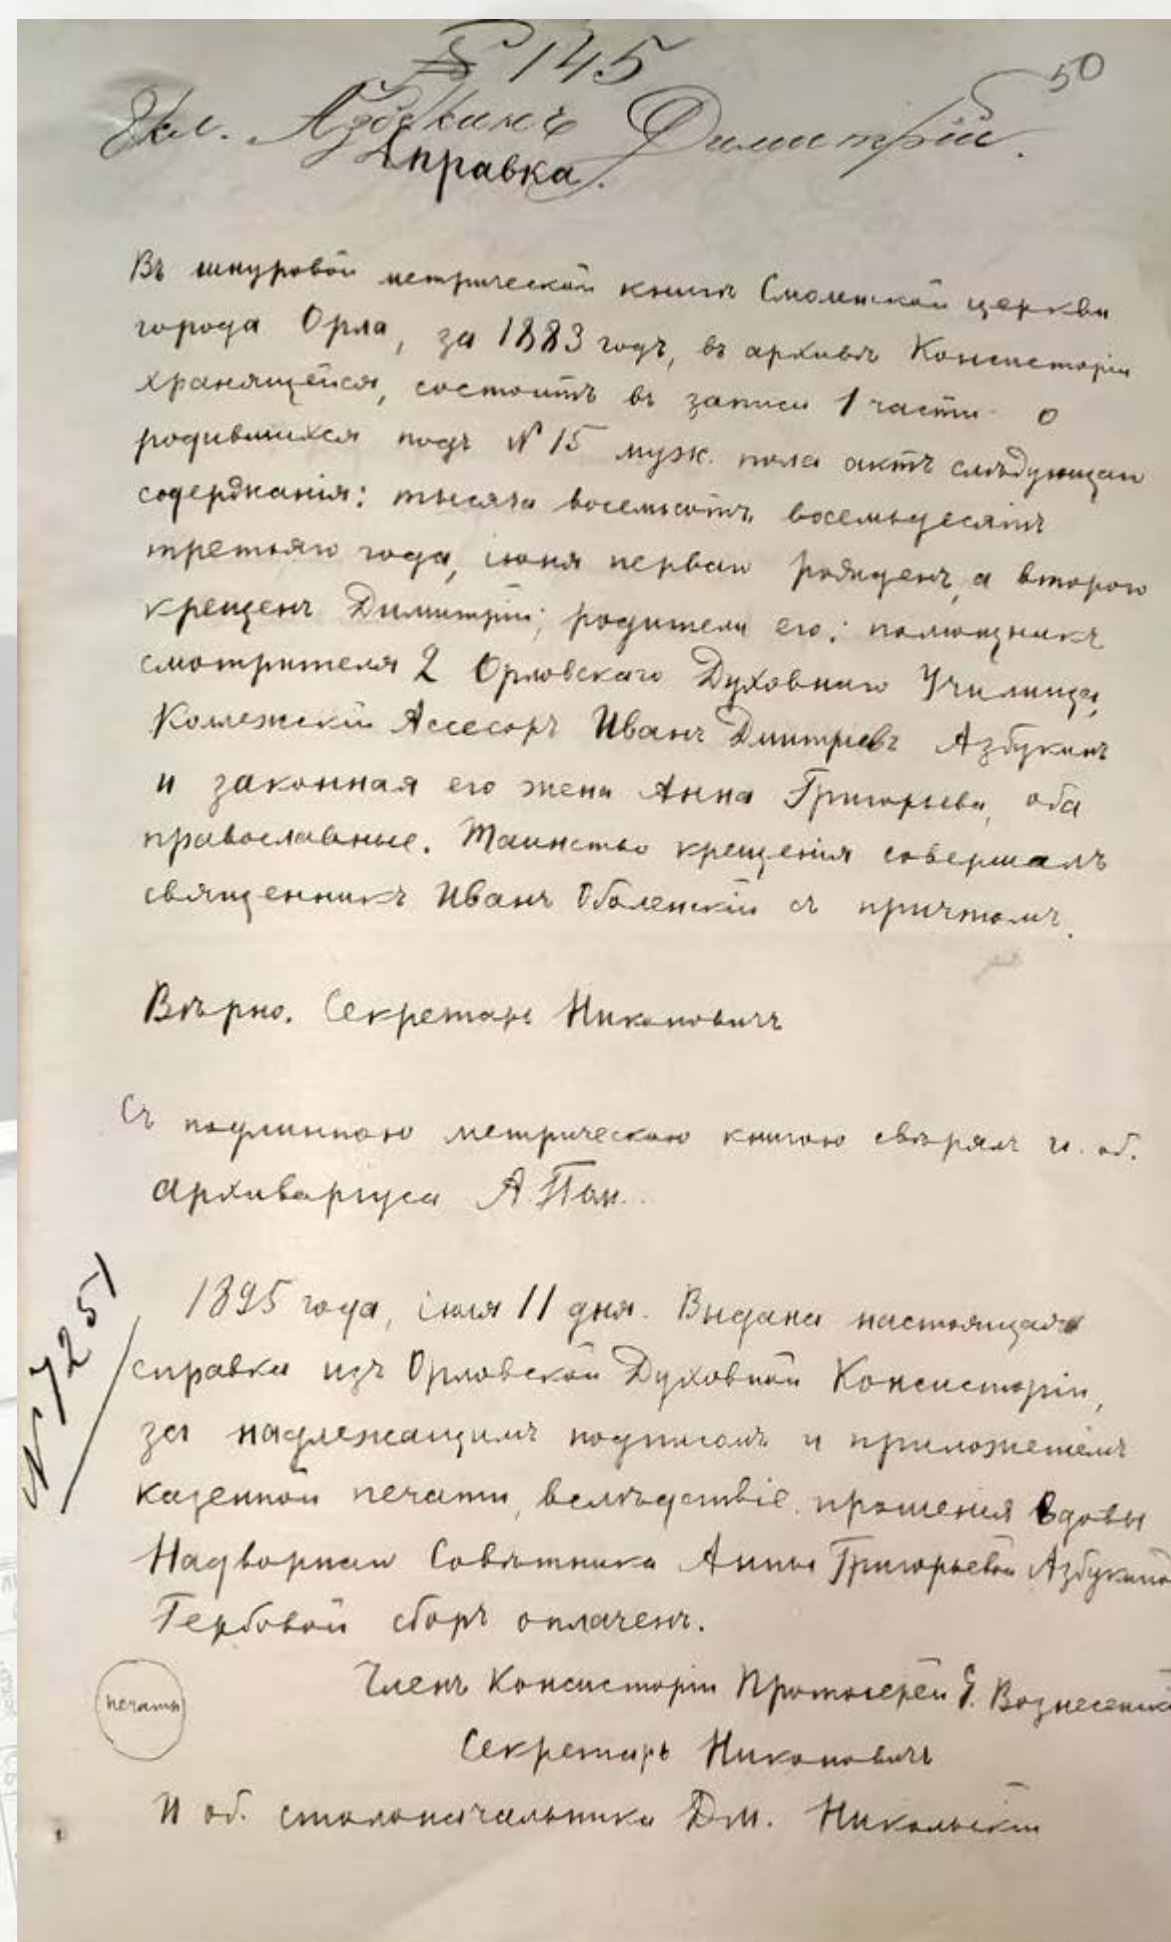 145
50
Азбукинъ Димитрій.
Справка.
Въ шнуровой метрической книгѣ Смоленской церкви
города Орла, за 1883 годъ, въ архивѣ Консисторіи
хранящейся, состоитъ въ записи 1 части о
родившихся подъ № 15 муж. пола актъ слѣдующаго
содержанія: тысяча восемьсотъ восемьдесятъ
третьяго года, іюня перваго рожденъ, а второго
крещенъ Димитрій; родители его: помощникъ
смотрителя 2 Орловскаго Духовнаго Училища,
Коллежскій Ассесоръ Иванъ Дмитріевъ Азбукинъ
и законная его жена Анна Григорьева, оба
православные. Таинство крещенія совершалъ
священникъ Иванъ Оболенскій съ причтомъ.
Вѣрно. Секретарь Никоновичъ
Съ подлинною метрическою книгою свѣрялъ и. об.
архиваріуса А. Поп..
№ 7251
1895 года, іюля 11 дня. Выдана настоящая
справка изъ Орловской Духовной Консисторіи,
за надлежащимъ подписомъ и приложеніемъ
казенной печати, вслѣдствіе прошенія вдовы
Надворнаго Совѣтника Анны Григорьевой Азбукиной
Гербовой сборъ оплаченъ.
печать
Членъ Консисторіи Протоіерей Вознесенскі
Секретарь Никоновичъ
И об. столоначальника Дм. Никольскій